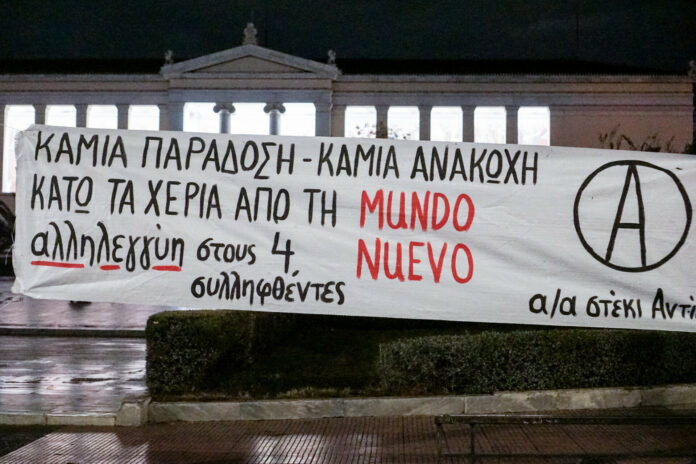 ΚΑΜΙΑ ΠΑΡΑΔΟΣΗ - ΚΑΜΙΑ ΑΝΑΚΩΧΗ
ΚΑΤΩ ΤΑ ΧΕΡΙΑ ΑΠΟ ΤΗ MUNDO
NUEVO
αλληλεγγύη στους 4
συλληφθέντες
A
α/α στέκι Αντί